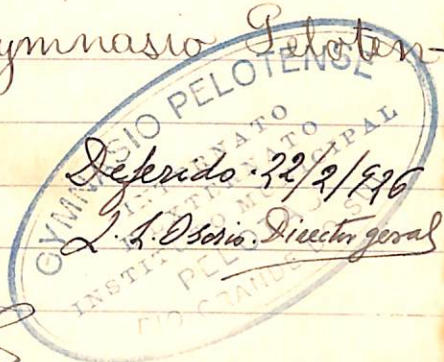 Gymnasio Peloten-
GYMNASIO PELOTENSE
INTERNATO
EXTERNATO
INSTITUTO MUNICIPAL
PELOTAS
RIO GRANDE DO SUL
Deferido. 22/2/926
L. L. Osorio. Director geral